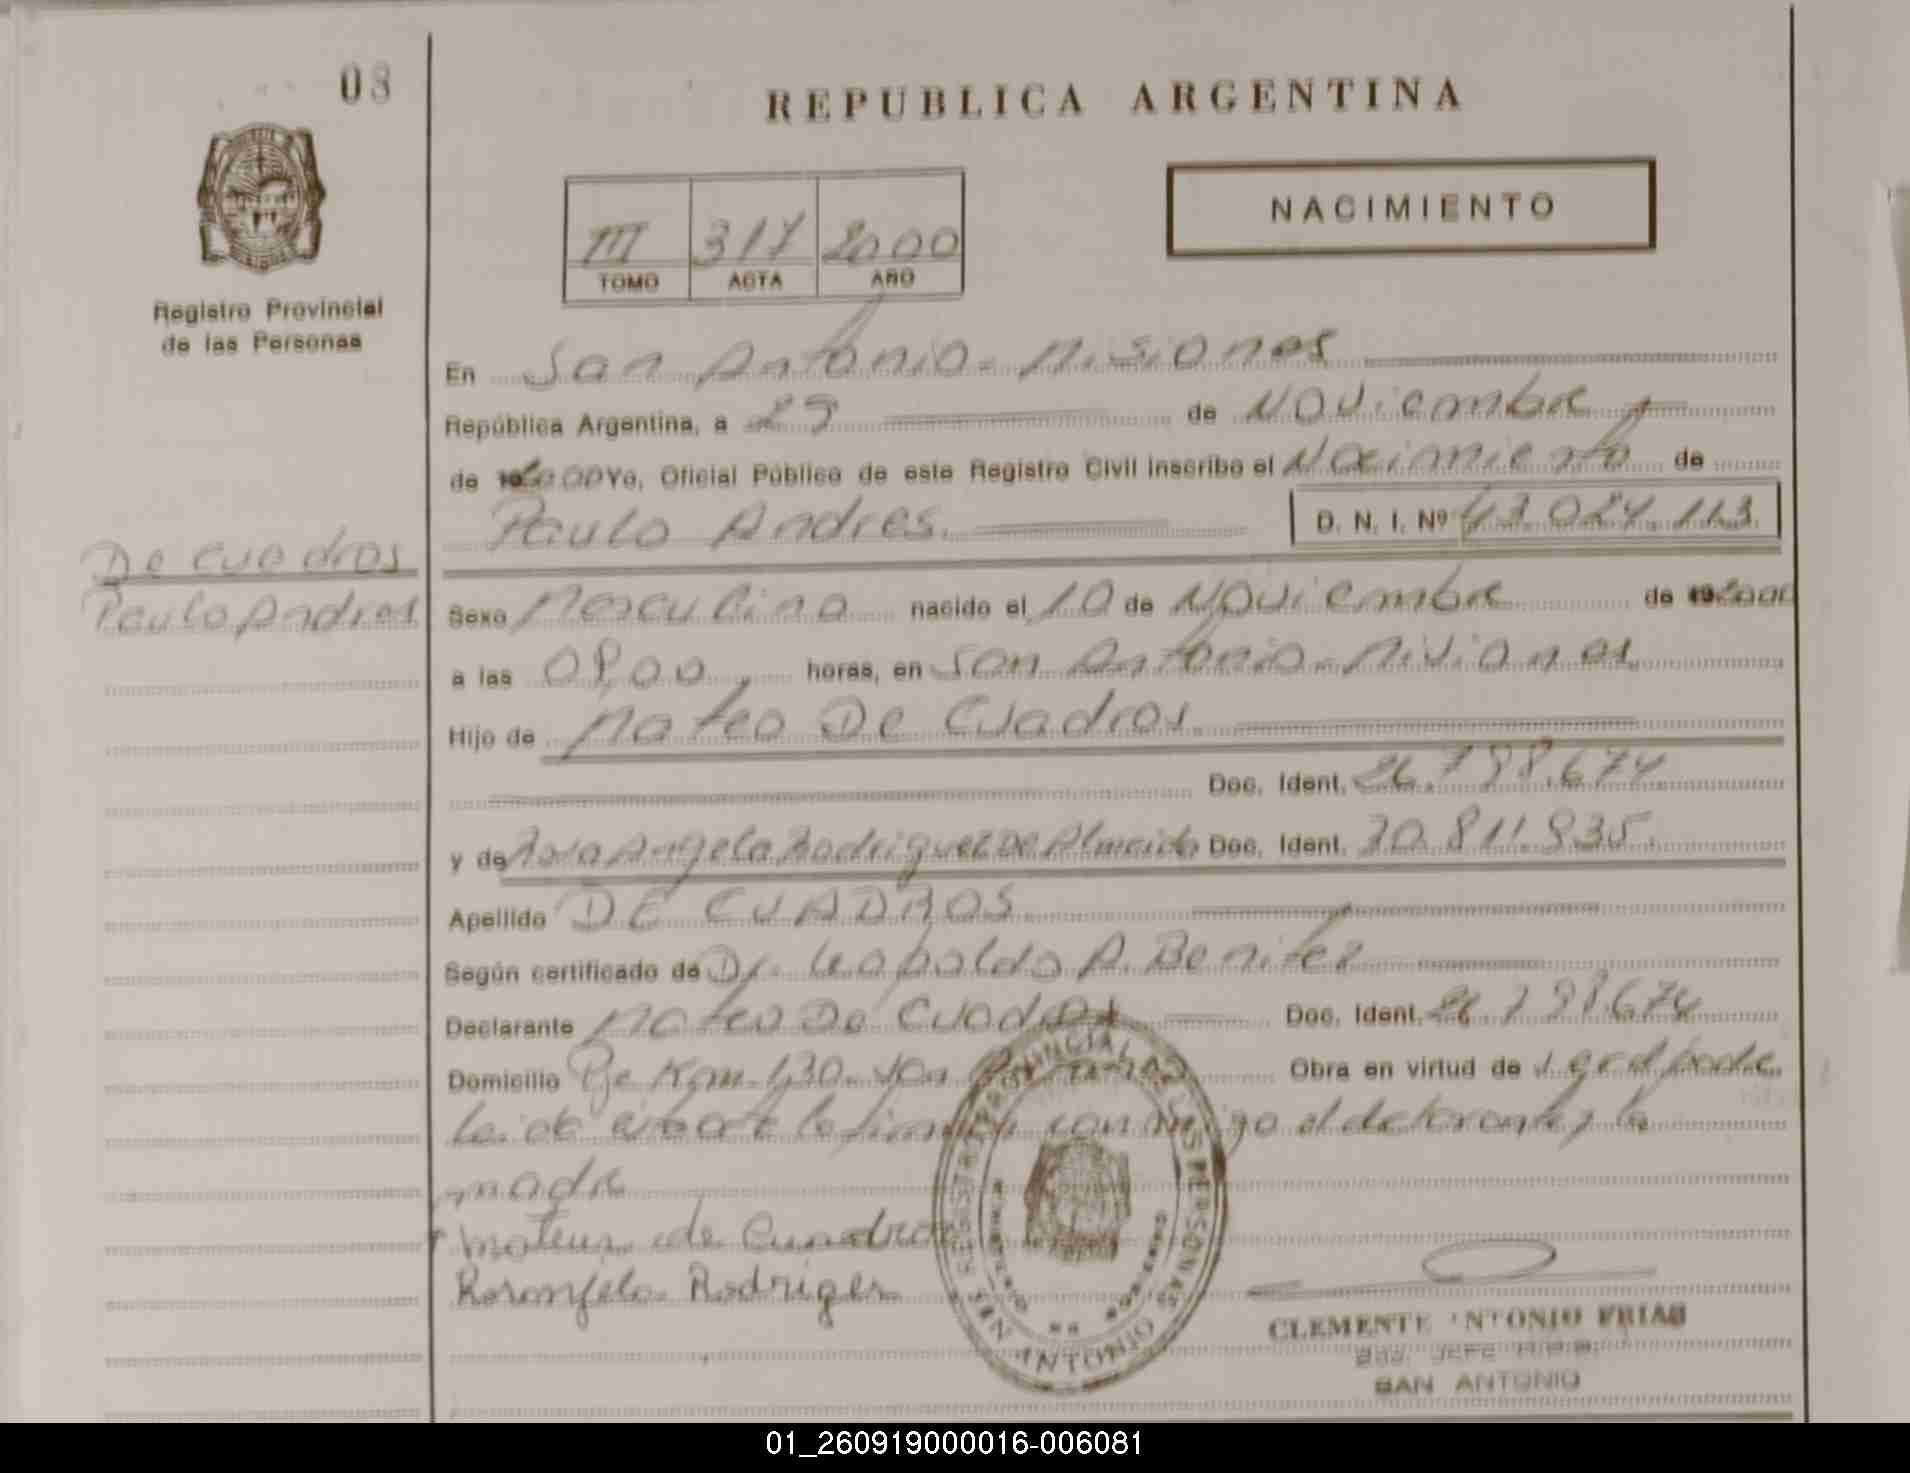 08
REPUBLICA ARGENTINA
NACIMIENTO
III 317 2000
TOMO ACTA AÑO
Registro Provincial
de las Personas
En San Antonio - Misiones
República Argentina, a 29 de Noviembre
de 2000 Yo, Oficial Público de este Registro Civil inscribo el Nacimiento de
Paulo Andres. D. N. I. Nº 43.024.113
De Cuadros
Paulo Andres
Sexo Masculino nacido el 10 de Noviembre de 2000
a las 08,00 horas, en San Antonio - Misiones
Hijo de Mateo De Cuadros.
Doc. Ident. 26.798.674
y de Rosa Angela Rodriguez De Almeida Doc. Ident. 30.811.935.
Apellido DE CUADROS
Según certificado de Dr. Leopoldo A. Benitez
Declarante Mateo De Cuadros Doc. Ident. 26.798.674
Domicilio Pje Km. 130. San Obra en virtud de
el declarante y la
madre
mateus de Cuadros
Rosangela Rodriges
REGISTRO PROVINCIAL DE LAS PERSONAS
SAN ANTONIO
CLEMENTE ANTONIO FRIAS
JEFE
SAN ANTONIO
01_260919000016-006081